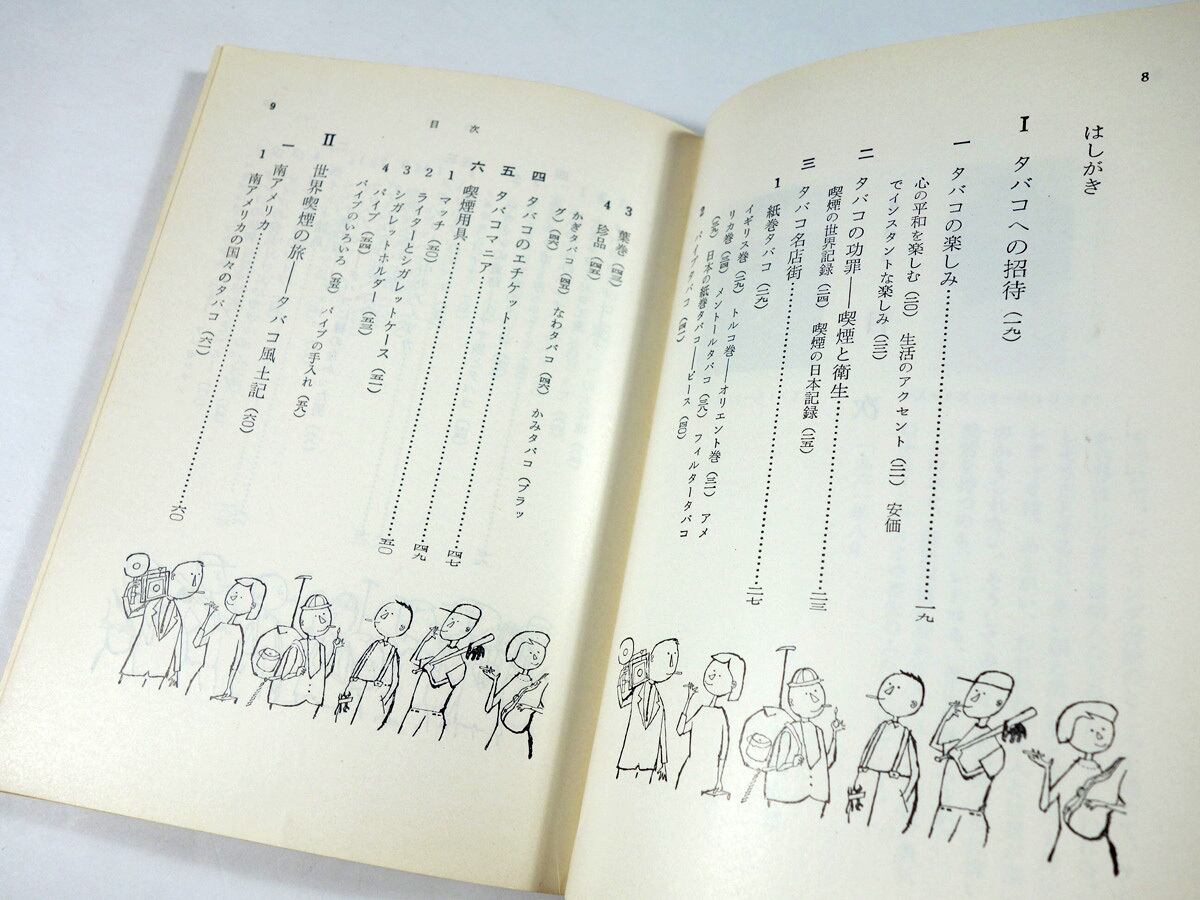 8
はしがき
Ⅰ タバコへの招待（一九）
一 タバコの楽しみ……………一九
心の平和を楽しむ（二〇） 生活のアクセント（二一） 安価
でインスタントな楽しみ（二二）
二 タバコの功罪――喫煙と衛生……………二三
喫煙の世界記録（二四） 喫煙の日本記録（二五）
三 タバコ名店街……………二七
1 紙巻タバコ（二九）
イギリス巻（二九） トルコ巻――オリエント巻（三一） アメ
リカ巻（三四） メントールタバコ（三八） フィルタータバコ
（三九） 日本の紙巻タバコ――ピース（四〇）
2 パイプタバコ（四一）
9
目次
3 葉巻（四三）
4 珍品（四五）
かぎタバコ（四五） なわタバコ（四六） かみタバコ（プラッ
グ）（四六）
四 タバコのエチケット……………四七
五 タバコマニア……………四九
六 喫煙用具……………五〇
1 マッチ（五〇）
2 ライターとシガレットケース（五一）
3 シガレットホルダー（五三）
4 パイプ（五四）
パイプのいろいろ（五五） パイプの手入れ（五八）
Ⅱ 世界喫煙の旅――タバコ風土記（六〇）
一 南アメリカ……………六〇
1 南アメリカの国々のタバコ（六一）